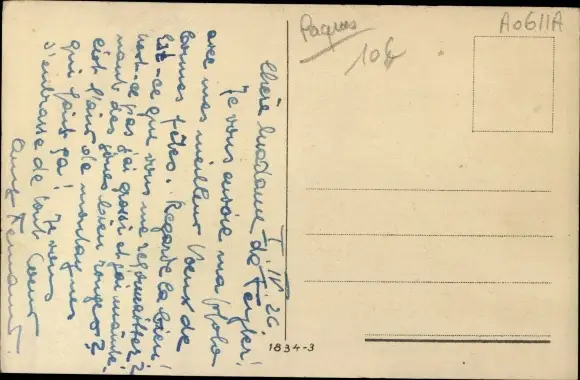 Paques
10 F
A0611A
1.IV.26
Chère Madame de
Je vous envoie ma photo
avec mes meilleurs voeux de
bonnes fêtes. Regarde la bien!
Est-ce que vous me reconnaissez?
n'est-ce pas j'ai grossi et j'ai mainte-
nant des joues bien rouges?
c'est l'air de montagnes
qui fait ça! Je vous
embrasse de tout coeur
1834-3